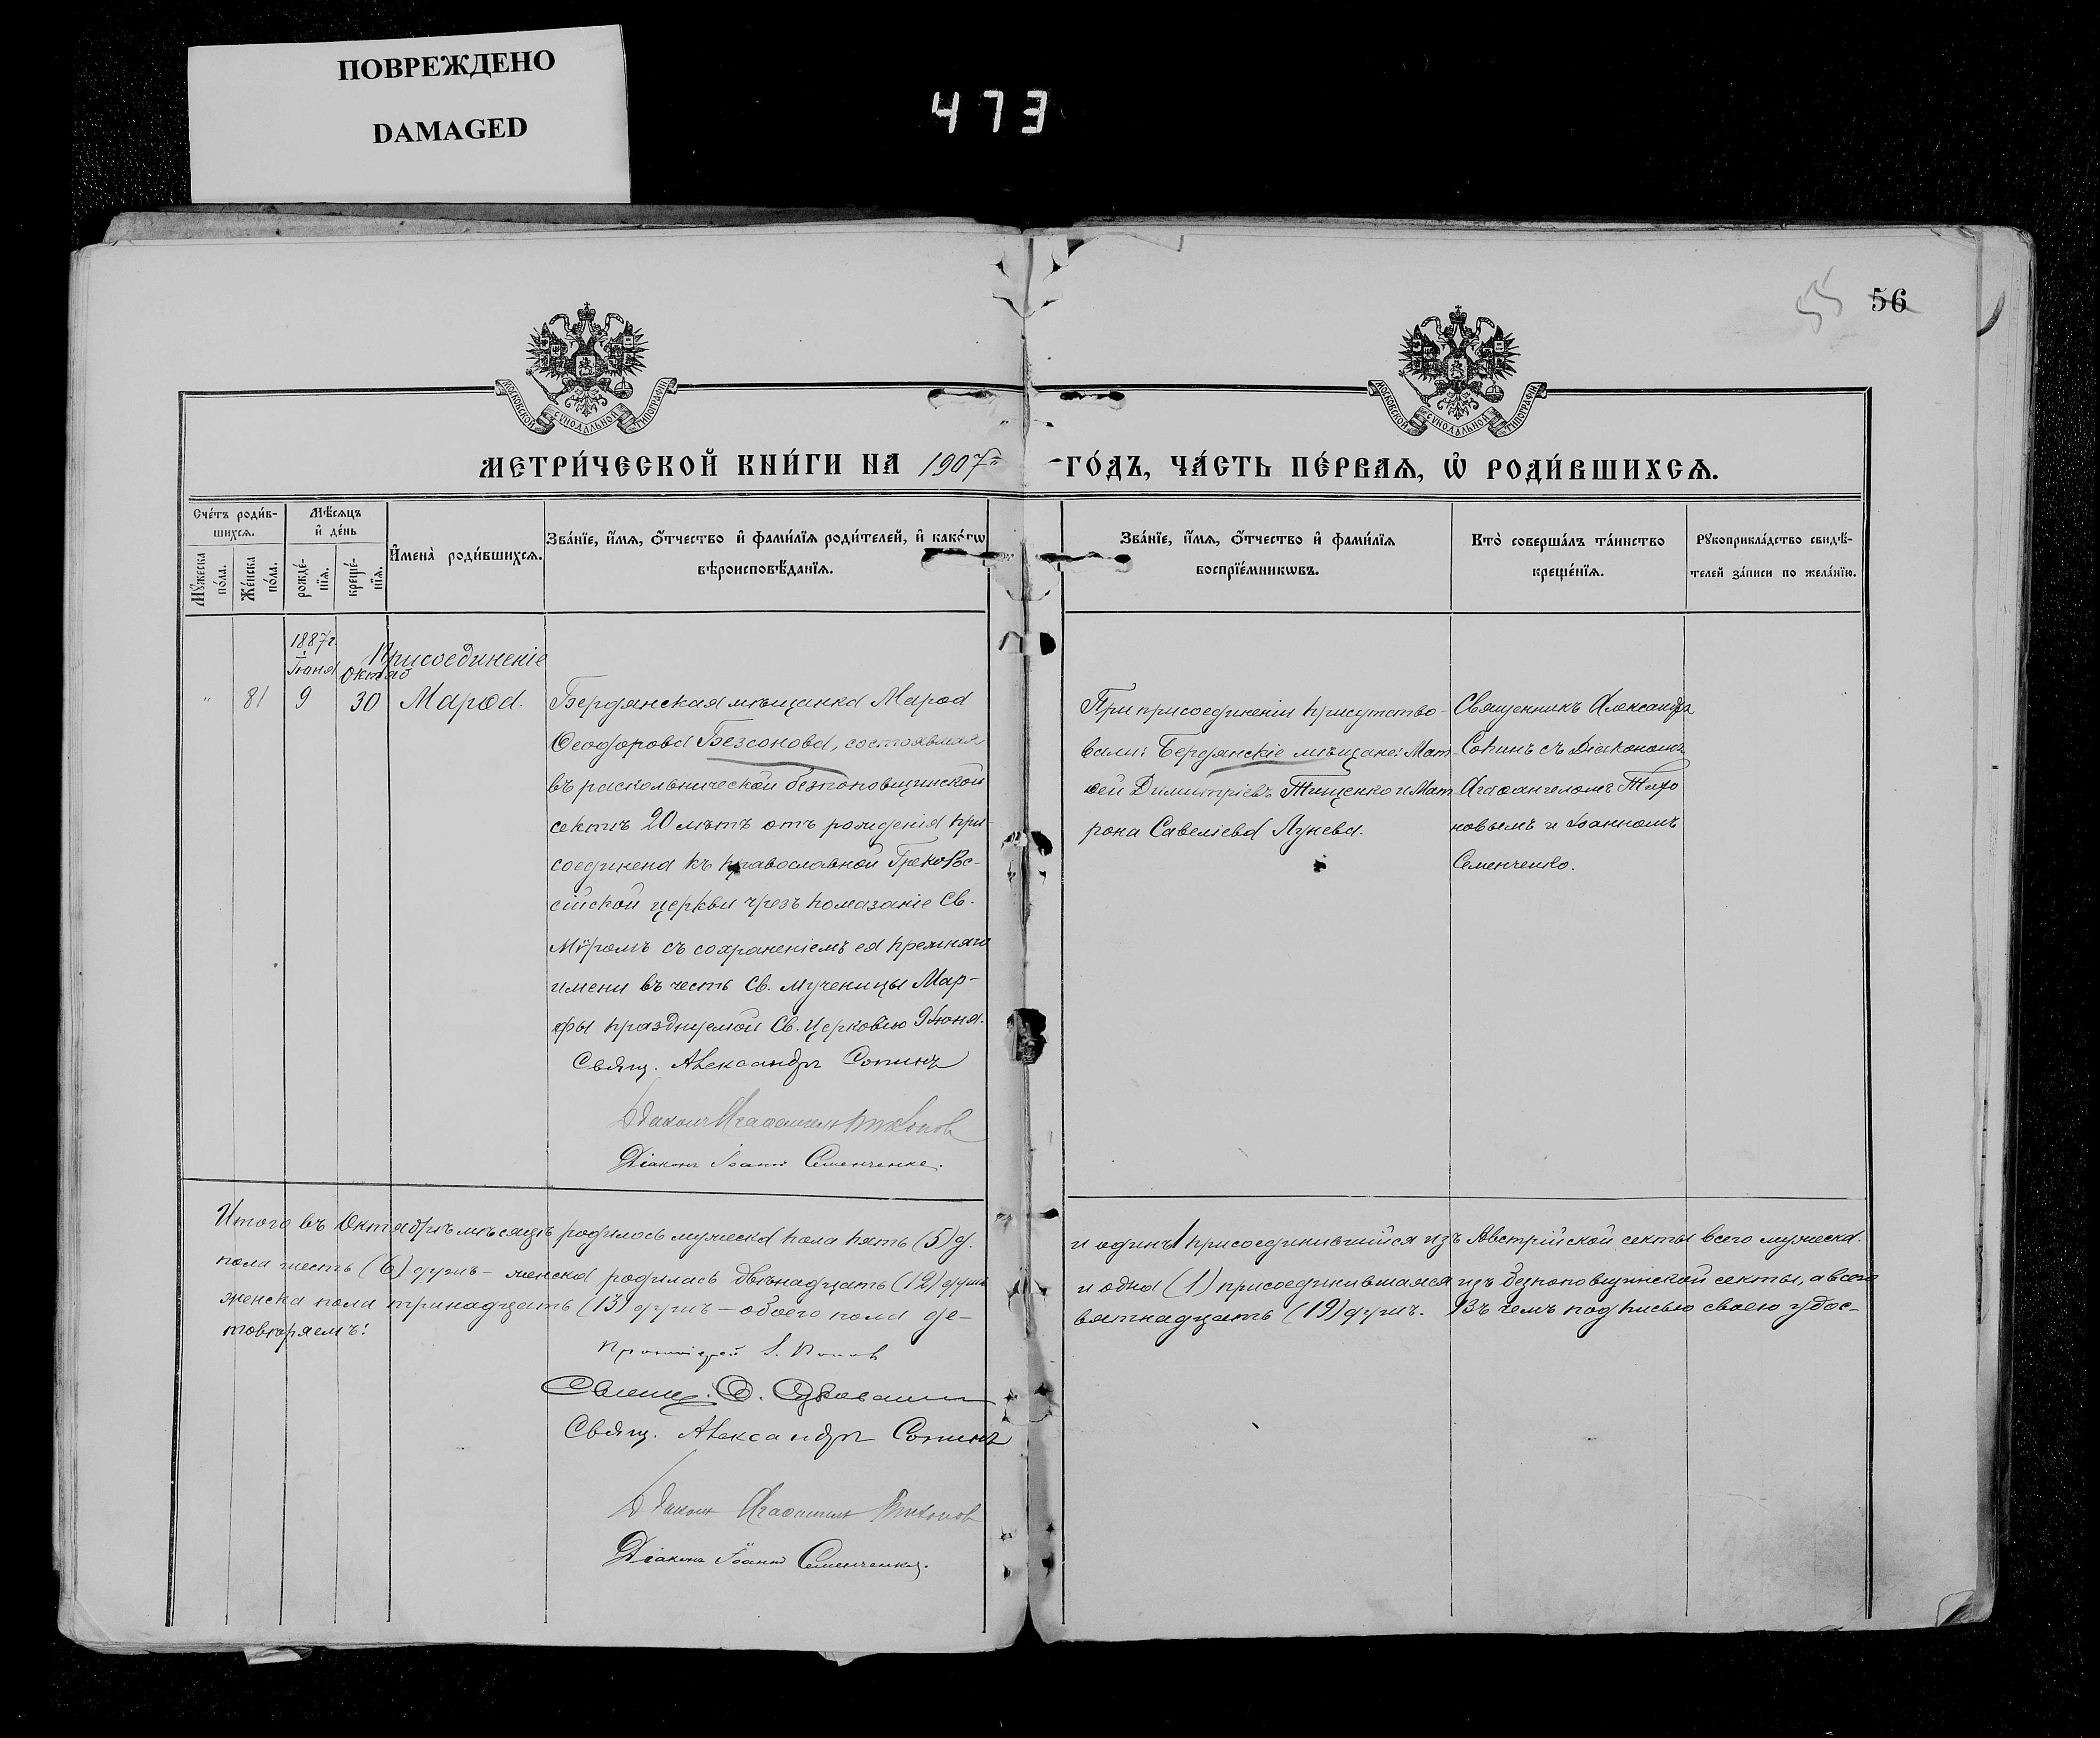 ПОВРЕЖДЕНО
DAMAGED
473
55 56
МОСКОВСКОЙ СѴНОДАЛЬНОЙ ТИПОГРАФІИ
МОСКОВСКОЙ СѴНОДАЛЬНОЙ ТИПОГРАФІИ
МЕТРИ́ЧЕСКОЙ КНИ́ГИ НА 1907й
ГО́ДЪ, ЧА́СТЬ ПЕ́РВАѦ, Ѡ РОДИ́ВШИХСѦ.
Сче́тъ роди́в-
шихсѧ.
Мꙋ́жеска по́ла.
Же́нска по́ла.
Мѣ́сѧцъ
и҆ де́нь
рожде́-
нїѧ.
креще́-
нїѧ.
И҆мена̀ роди́вшихсѧ.
Зва́нїе, и҆́мѧ, ѻ҆́тчество и҆ фами́лїѧ роди́телей, и҆ како́гѡ
вѣроисповѣ́данїѧ.
Зва́нїе, и҆́мѧ, ѻ҆́тчество и҆ фами́лїѧ
воспрїе́мникѡвъ.
Кто̀ соверша́лъ та́инство
креще́нїѧ.
Рꙋкоприкла́дство свидѣ́-
телей за́писи по жела́нїю.
1887г.
Іюня
Октяб
Присоединеніе
" 81 9 30 Марѳа.
Бердянская мѣщанка Марѳа
Ѳеодорова Безсонова, состоявшая
въ раскольнической безпоповщинской
сектѣ 20 лѣтъ отъ рожденія при-
соединена къ православной ГрекоРос-
сійской церкви чрезъ помазаніе Св.
Мѵромъ съ сохраненіемъ ея прежняго
имени въ честь Св. мученицы Мар-
ѳы празднуемой Св. Церковію 9 Іюня.
Свящ. Александръ Сопинъ
Діаконъ Агаѳангелъ Тихонов
Діаконъ Іоаннъ Семенченко.
При присоединеніи присутство-
вали: Бердянскіе мѣщане: Мат-
ѳей Димитріевъ Тищенко и Мат
рона Савеліева Лунева.
Священникъ Александръ
Сопинъ съ Діакономъ
Агаѳангеломъ Тихо
новымъ и Іоанномъ
Семенченко.
Итого въ Октябрѣ мѣсяцѣ родилось мужеска пола пять (5) д.
и одинъ 1 присоединившийся изъ Австрійской секты всего мужеска.
пола шесть (6) душъ - женска родилась двѣнадцать (12) душъ
и одна (1) присоединившаяся изъ безпоповщинской секты, а всего
женска пола тринадцать (13) душъ - обоего пола де-
вятнадцать (19) душъ. Въ чемъ подписью своею удос-
товѣряемъ:
Протоіерей І. Попов
Свящ. Александръ Сопинъ
Діаконъ Агаѳангелъ Тихонов
Діаконъ Іоаннъ Семенченко.